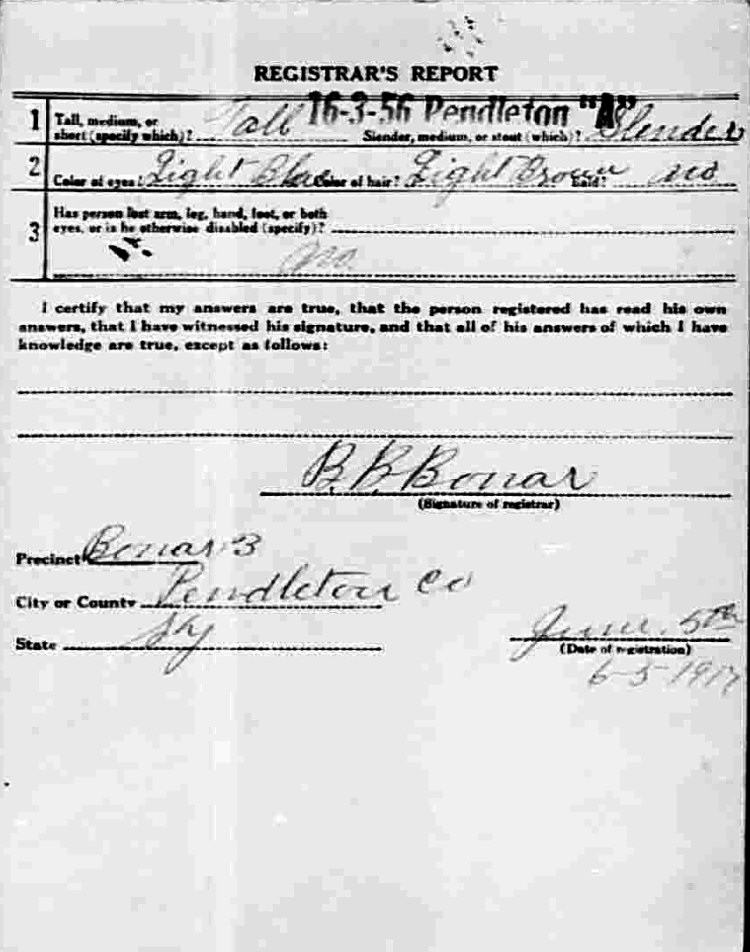 REGISTRAR'S REPORT
16-3-56 Pendleton "A"
1 Tall, medium, or short (specify which)? Tall Slender, medium, or stout (which)? Slender
2 Color of eyes? Light Blue Color of hair? Light Brown Bald? No
3 Has person lost arm, leg, hand, foot, or both
eyes, or is he otherwise disabled (specify)?
No.
I certify that my answers are true, that the person registered has read his own
answers, that I have witnessed his signature, and that all of his answers of which I have
knowledge are true, except as follows:
B. B. Bonar
(Signature of registrar)
Precinct Bonar 3
City or County Pendleton Co
State Ky
June. 5th
(Date of registration)
6-5-1917